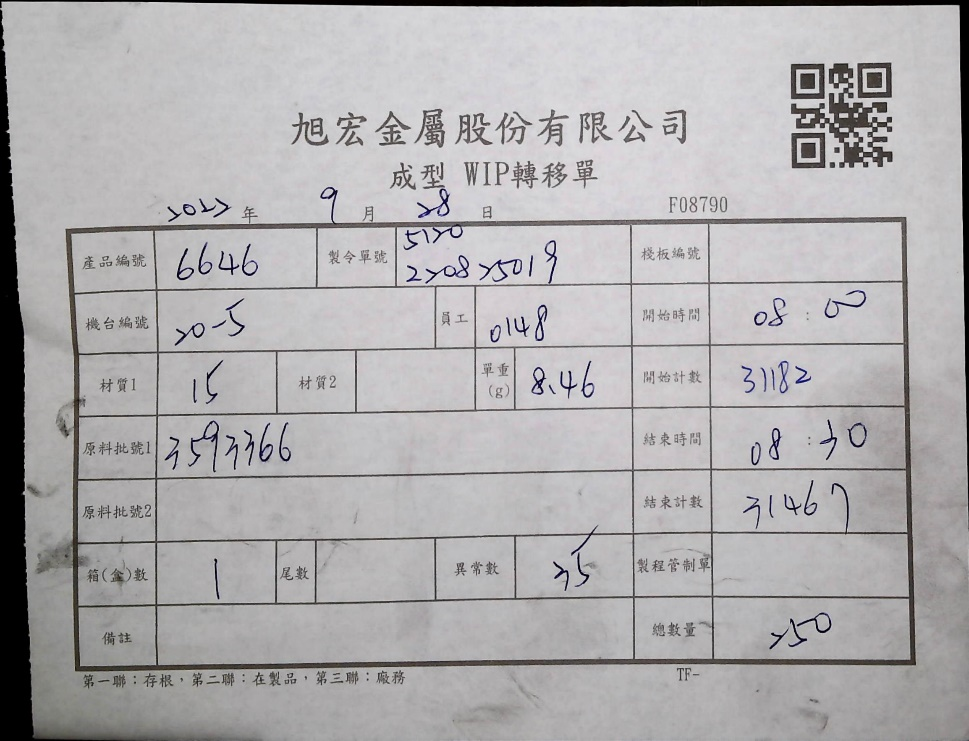 旭宏金屬股份有限公司
成型 WIP轉移單
2022 年 9 月 28 日 F08790
產品編號 6646 製令單號 5120 220825019 棧板編號
機台編號 20-5 員工 0148 開始時間 08:00
材質1 15 材質2 單重(g) 8.46 開始計數 31182
原料批號1 3593366 結束時間 08:30
原料批號2 結束計數 31467
箱(盒)數 1 尾數 異常數 35 製程管制單
備註 總數量 250
第一聯：存根，第二聯：在製品，第三聯：廠務 TF-